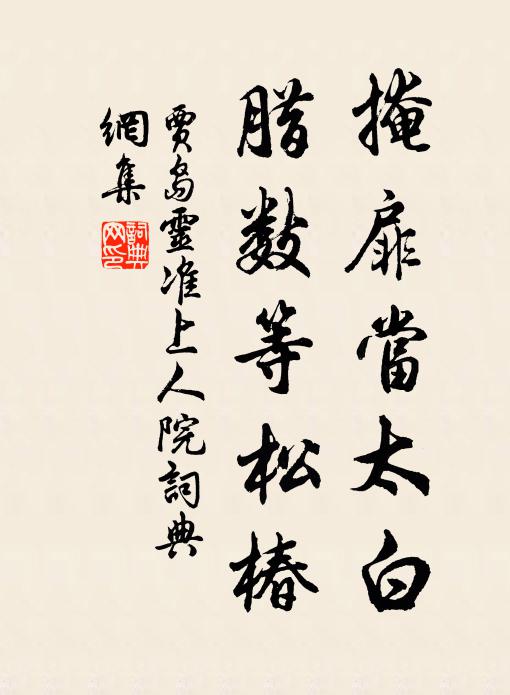 掩扉當太白
腊数等松椿
賈島靈准上人院詞典
網集
詞典網印